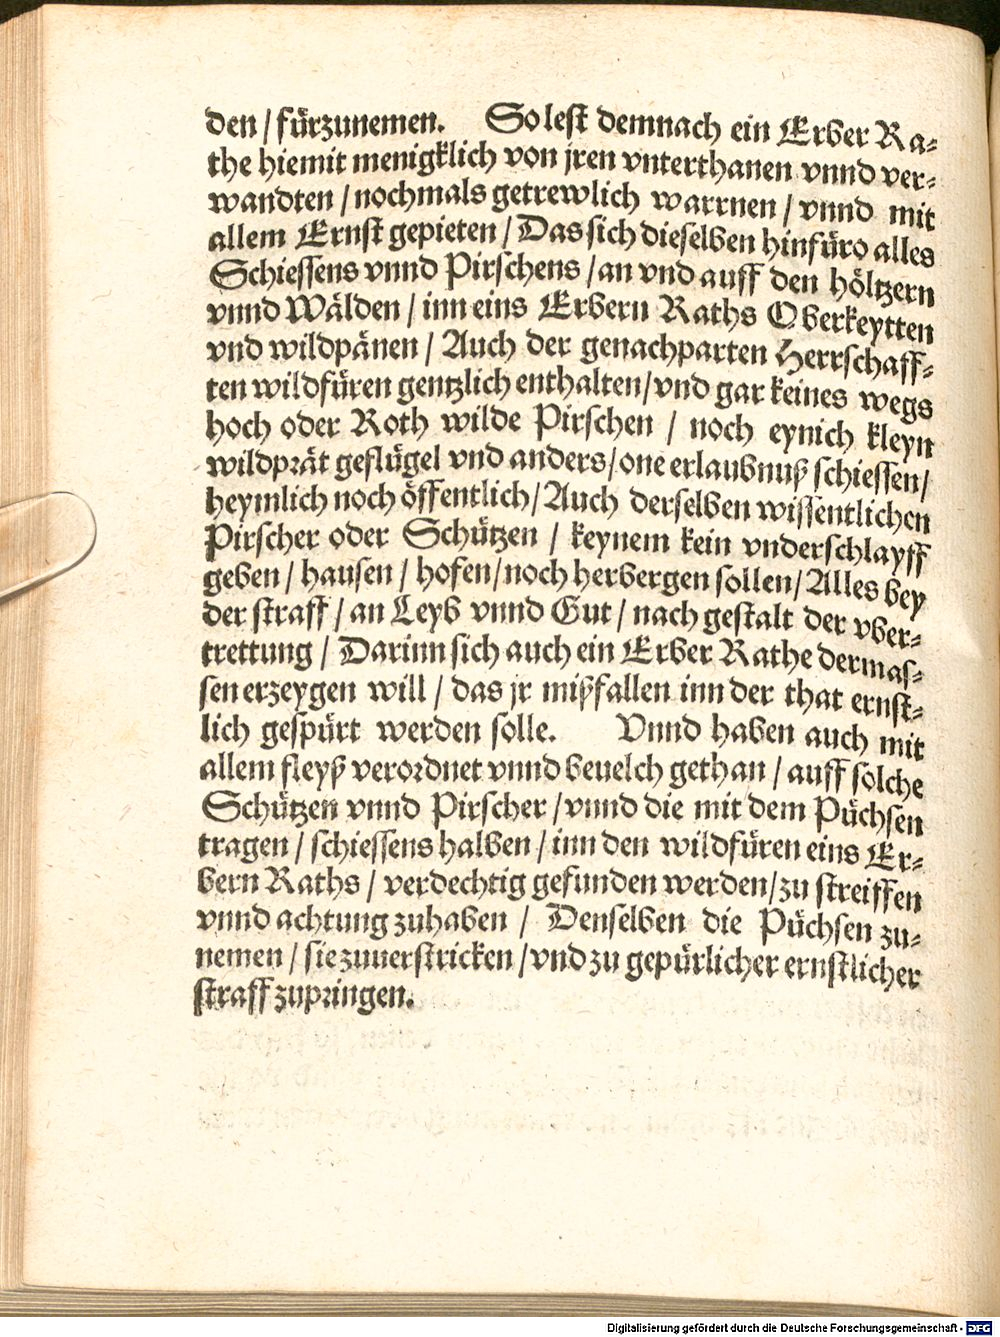 den / fürzunemen. So lest demnach ein Erber Ra⸗
the hiemit menigklich von jren vnterthanen vnnd ver⸗
wandten / nochmals getrewlich warrnen / vnnd mit
allem Ernst gepieten / Das sich dieselben hinfüro alles
Schiessens vnnd Pirschens / an vnd auff den höltzern
vnnd Wälden / inn eins Erbern Raths Oberkeytten
vnd wildpänen / Auch der genachparten Herrschaff⸗
ten wildfüren gentzlich enthalten / vnd gar keines wegs
hoch oder Roth wilde Pirschen / noch eynich kleyn
wildprät geflügel vnd anders / one erlaubnuß schiessen /
heymlich noch öffentlich / Auch derselben wissentlichen
Pirscher oder Schützen / keynem kein vnderschlayff
geben / hausen / hofen / noch herbergen sollen / Alles bey
der straff / an Leyb vnnd Gut / nach gestalt der vber⸗
trettung / Darinn sich auch ein Erber Rathe dermas⸗
sen erzeygen will / das jr mißfallen inn der that ernst⸗
lich gespürt werden solle. Vnnd haben auch mit
allem fleyß verordnet vnnd beuelch gethan / auff solche
Schützen vnnd Pirscher / vnnd die mit dem Püchsen
tragen / schiessens halben / inn den wildfüren eins Er⸗
bern Raths / verdechtig gefunden werden / zu streiffen
vnnd achtung zuhaben / Denselben die Püchsen zu⸗
nemen / sie zuuerstricken / vnd zu gepürlicher ernstlicher
straff zupringen.
Digitalisierung gefördert durch die Deutsche Forschungsgemeinschaft - DFG